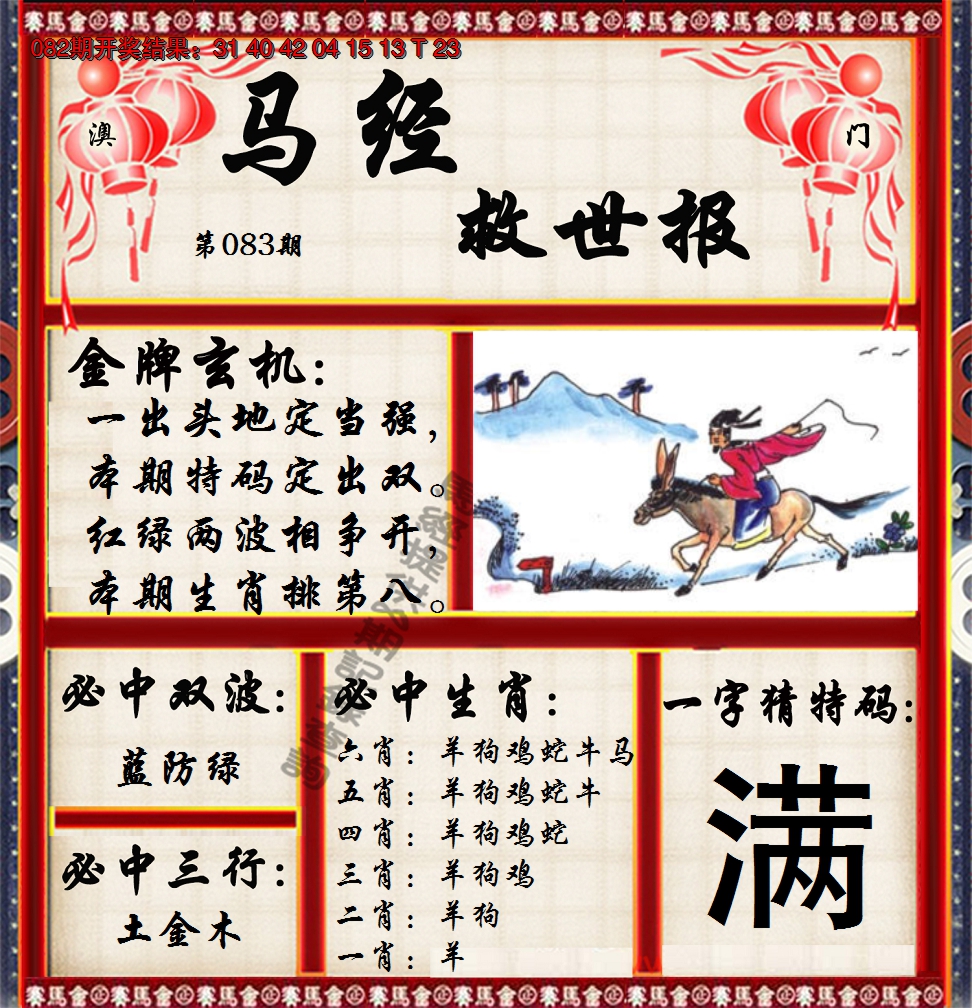 082期开奖结果：31 40 42 04 15 13 T 23
澳
门
马经
救世报
第083期
金牌玄机：
一出头地定当强，
本期特码定出双。
红绿两波相争开，
本期生肖排第八。
必中双波：
蓝防绿
必中三行：
土金木
必中生肖：
六肖：羊狗鸡蛇牛马
五肖：羊狗鸡蛇牛
四肖：羊狗鸡蛇
三肖：羊狗鸡
二肖：羊狗
一肖：羊
一字猜特码：
满